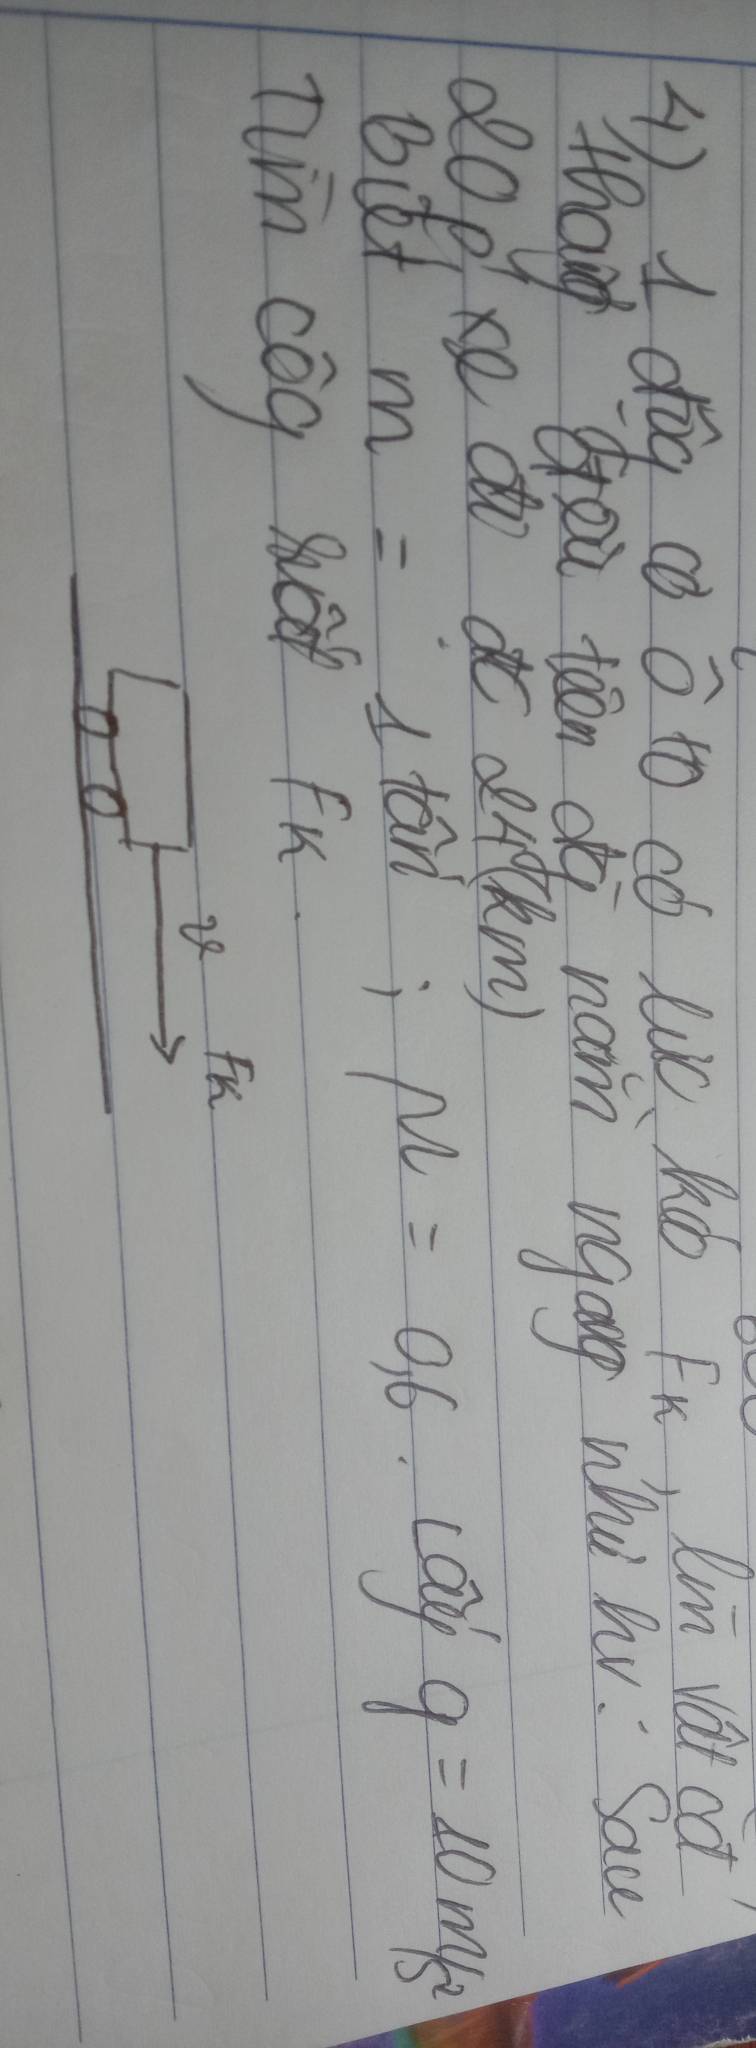 4) 1 động cơ ô tô có lực kéo Fk, làm vật cđ
thẳng đều trên đg nằm ngang như hv. Sau
20 p' xe đi đc 24 (km)
Biết m = 1 tấn ; μ = 0,6. Lấy g = 10 m/s²
Tìm côg suất Fk.
v Fk